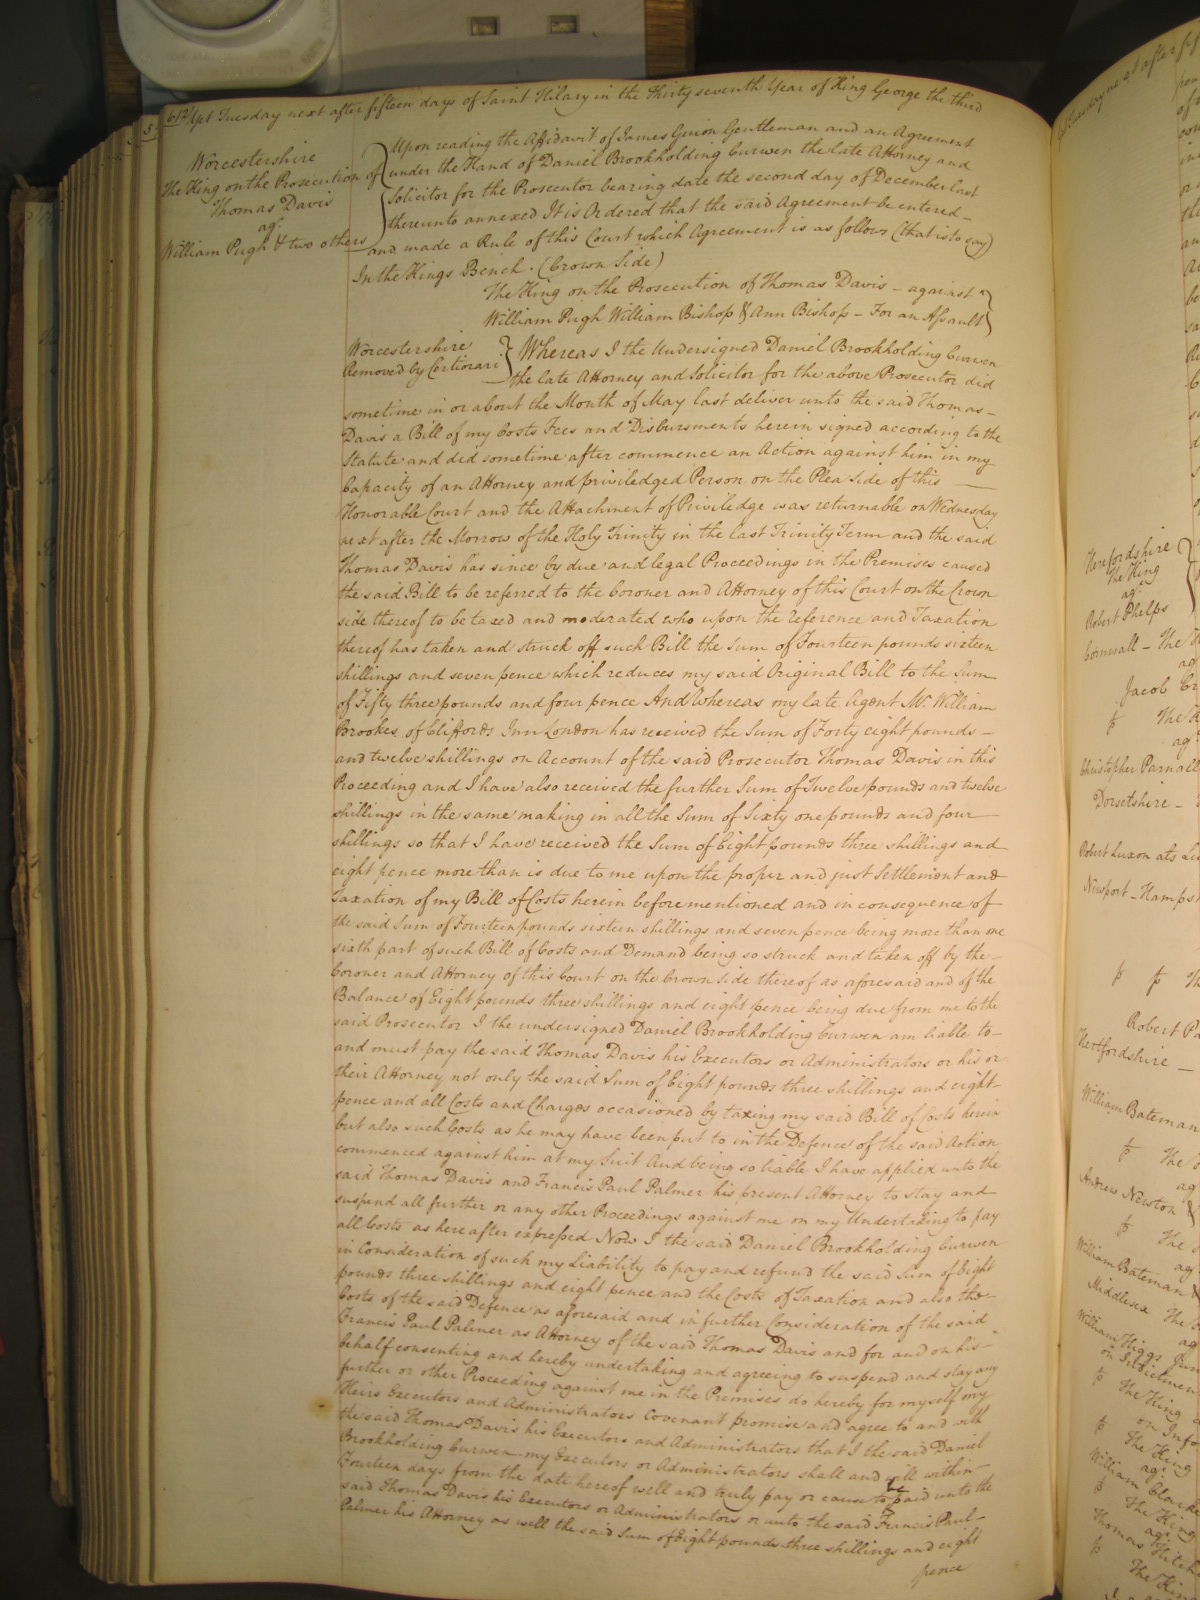 612
5
Yet Tuesday next after fifteen days of Saint Hilary in the Thirty seventh Year of King George the third
Worcestershire
The King on the Prosecution of
Thomas Davis
agt
William Pugh & two others
Upon reading the Affidavit of James Guion Gentleman and an Agreement
under the Hand of Daniel Brookholding Curwen the late Attorney and
Solicitor for the Prosecutor bearing date the second day of December last
thereunto annexed It is Ordered that the said Agreement be entered
and made a Rule of this Court which Agreement is as follows (that is to say)
In the Kings Bench. (Crown Side)
The King on the Prosecution of Thomas Davis - against
William Pugh William Bishop & Ann Bishop - For an Assault
Worcestershire
Removed by Certiorari
Whereas I the Undersigned Daniel Brookholding Curwen
the late Attorney and Solicitor for the above Prosecutor did
sometime in or about the Month of May last deliver unto the said Thomas
Davis a Bill of my Costs Fees and Disbursments herein signed according to the
Statute and did sometime after commence an Action against him in my
Capacity of an Attorney and priviledged Person on the Plea Side of this
Honorable Court and the Attachment of Priviledge was returnable on Wednesday
next after the Morrow of the Holy Trinity in the last Trinity Term and the said
Thomas Davis has since by due and legal Proceedings in the Premises caused
the said Bill to be referred to the Coroner and Attorney of this Court on the Crown
side thereof to be taxed and moderated who upon the Reference and Taxation
thereof has taken and struck off such Bill the Sum of Fourteen pounds sixteen
shillings and seven pence which reduces my said Original Bill to the Sum
of Fifty three pounds and four pence And Whereas my late Agent Mr. William
Brookes of Cliffords Inn London has received the Sum of Forty eight pounds
and twelve shillings on Account of the said Prosecutor Thomas Davis in this
Proceeding and I have also received the further Sum of Twelve pounds and twelve
shillings in the same making in all the Sum of Sixty one pounds and four
shillings so that I have received the Sum of Eight pounds three shillings and
eight pence more than is due to me upon the proper and just Settlement and
Taxation of my Bill of Costs herein before mentioned and in consequence of
the said Sum of Fourteen pounds sixteen shillings and seven pence being more than one
sixth part of such Bill of Costs and Demand being so struck and taken off by the
Coroner and Attorney of this Court on the Crown Side thereof as aforesaid and of the
Balance of Eight pounds three shillings and eight pence being due from me to the
said Prosecutor I the undersigned Daniel Brookholding Curwen am liable to
and must pay the said Thomas Davis his Executors or Administrators or his or
their Attorney not only the said Sum of Eight pounds three shillings and eight
pence and all Costs and Charges occasioned by taxing my said Bill of Costs herein
but also such Costs as he may have been put to in the Defence of the said Action
commenced against him at my Suit And being so liable I have applied unto the
said Thomas Davis and Francis Paul Palmer his present Attorney to stay and
suspend all further or any other Proceedings against me on my Undertaking to pay
all Costs as hereafter expressed Now I the said Daniel Brookholding Curwen
in Consideration of such my Liability to pay and refund the said Sum of Eight
pounds three shillings and eight pence and the Costs of Taxation and also the
Costs of the said Defence as aforesaid and in further Consideration of the said
Francis Paul Palmer as Attorney of the said Thomas Davis and for and on his
behalf consenting and hereby undertaking and agreeing to suspend and stay any
further or other Proceeding against me in the Premises do hereby for myself my
Heirs Executors and Administrators Covenant promise and agree to and with
the said Thomas Davis his Executors and Administrators that I the said Daniel
Brookholding Curwen my Executors or Administrators shall and will within
Fourteen days from the date hereof well and truly pay or cause to be paid unto the
said Thomas Davis his Executors or Administrators or unto the said Francis Paul
Palmer his Attorney as well the said Sum of Eight pounds three shillings and eight
pence
Herefordshire
The King
agt
Robert Phelps
Cornwall - The
Jacob
The
agt
Christopher Parnall
Dorsetshire -
Robert Luxon ats
Newport - Hampsh
Robert
Hertfordshire -
William Bateman
The
ag
Andrew Newton &
The
ag
William Bateman
Middlesex The
ag
William Higgs Jun
on Indictment
The King
on Info
The King
ag
William Clarke
The King
ag
Thomas Hitch
The King